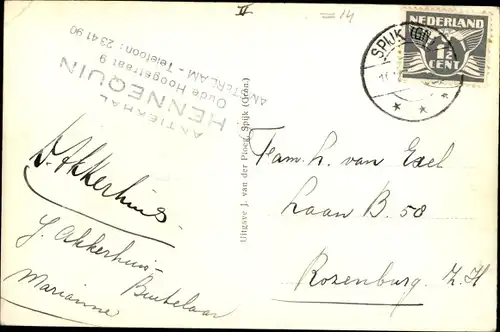 II
=14
ANTIEKHAL
HENNEQUIN
Oude Hoogstraat 9
AMSTERDAM - Telefoon: 23 41 90
SPIJK (GN)
NEDERLAND
1½
CENT
D. Akkerhuis
J. Akkerhuis-
Buitelaar
Marianne
Uitgave J. van der Ploeg, Spijk (Gron.)
Fam. L. van Exel
Laan B. 58
Rozenburg Z.H